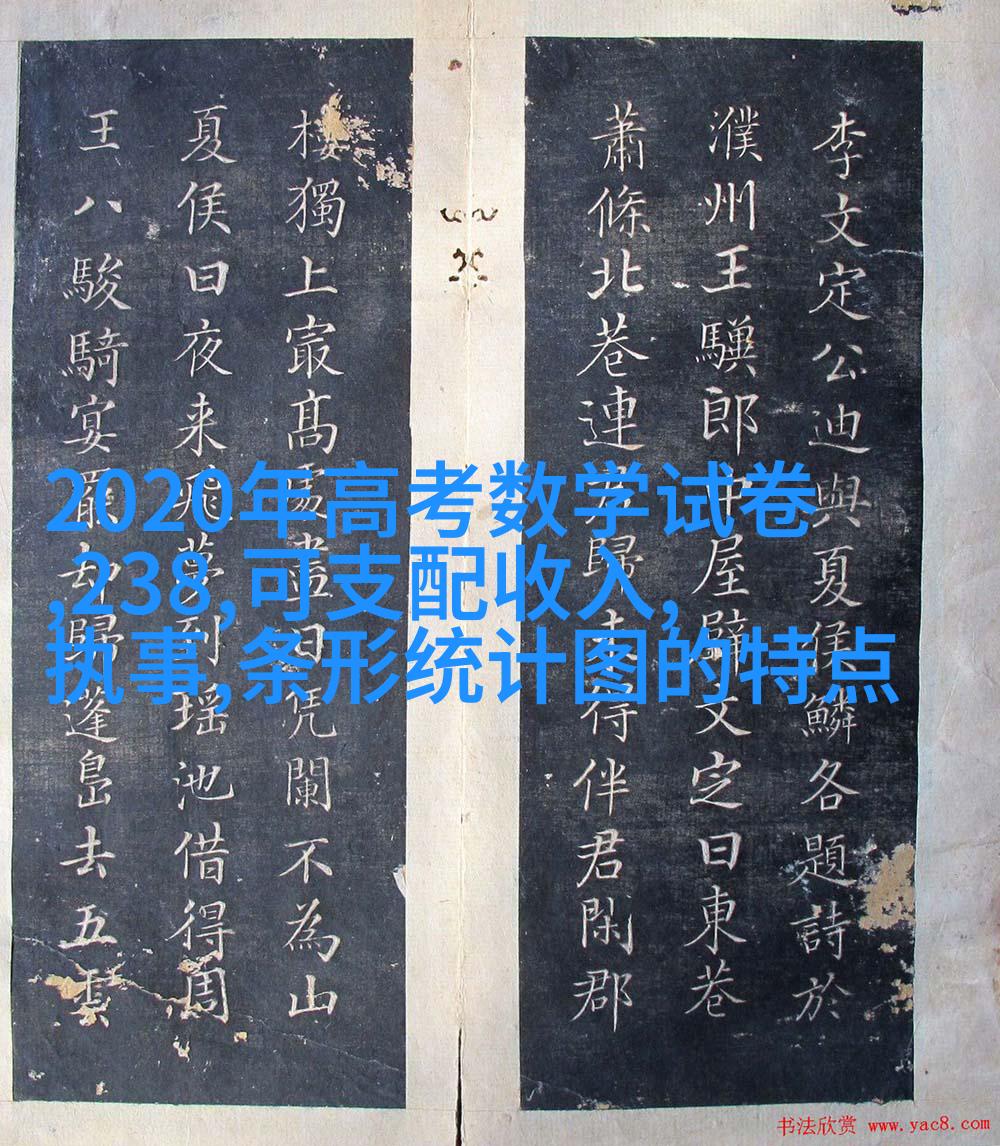 李文定公迪與夏侯鱗各題詩於
濮州王驥郎中屋壁文定曰東巷
蕭條北巷連
歸來
得伴君閑郡
樓獨上寂高處盡日凭闌不為山
夏侯曰夜来飛夢到瑶池借得周
王八駿騎宴罷却歸蓬島去五雲
2020年高考数学试卷
,238,可支配收入,
执事,条形统计图的特点
书法欣赏 www.yac8.com